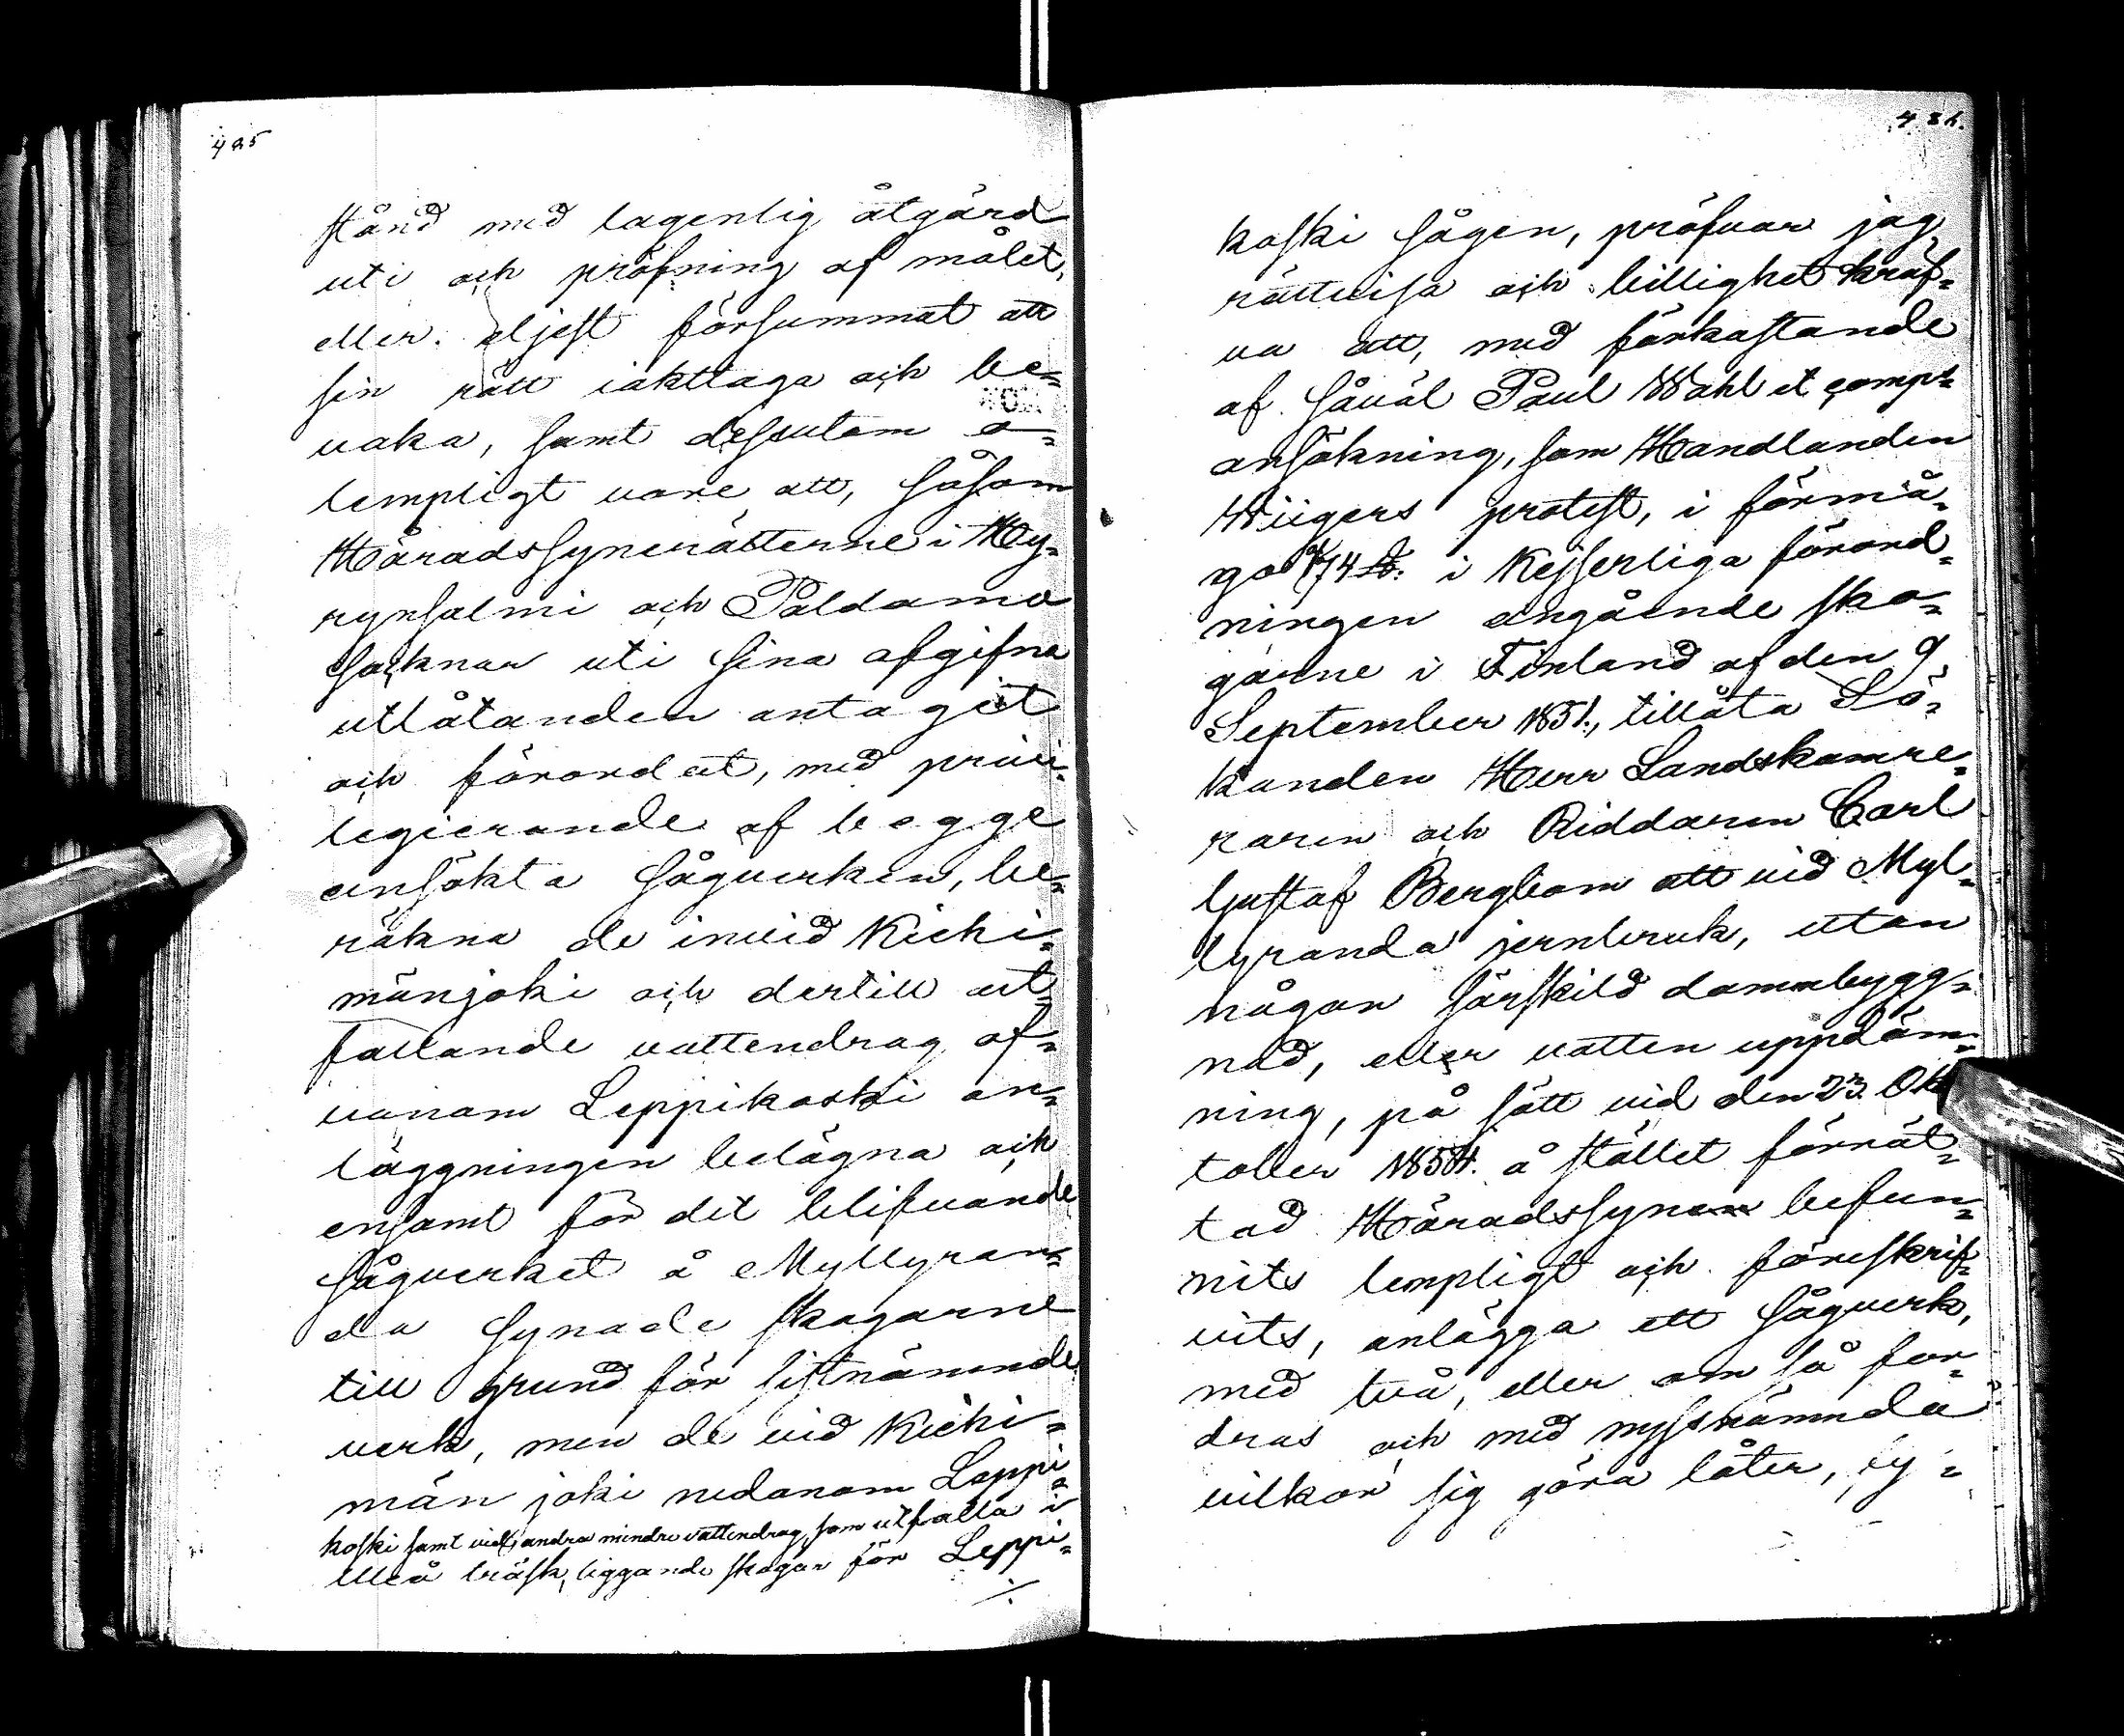 485
stånd med lagenlig åtgärd
uti och pröfning af målet,
eller eljest försummat att
sin rätt iakttaga och be=
vaka, samt dessutom o=
lempligt vore att, såsom
Häradssynerätterne i Hy=
rynsalmi och Paldamo
socknar uti sina afgifne
utlåtanden antagit
och förordat, med privi=
legierande af begge
ansökta sågverken, be=
räkna de invid Kiehi=
mänjoki och dertill ut=
fallande vattendrag of=
vanom Leppikoski an=
läggningen belägna och
ensamt för det blifvande
sågverket å Myllyran=
da synade skogarne
till grund för sistnämnde
verk, men de vid Kiehi=
män joki nedanom Leppi=
koski samt vid andra mindre vattendrag, som utfalla i
Uleå träsk, liggande skogar för Leppi=
486.
koski sågen, pröfvar jag
rättvisa och billighet kräf=
va att, med förkastande
af såväl Paul Wahl et comp:s
ansökning, som Handlanden
Wiigers protest, i förmå=
go af 74 §. i Kejserliga förord=
ningen angående sko=
garne i Finland af den 9
September 1851., tillåta Sö=
kanden Herr Landskamre=
raren och Riddaren Carl
Gustaf Bergbom att vid Myl=
lyranda jernbruk, utan
någon särskild dammbygg=
nad, eller vatten uppdäm=
ning, på sätt vid den 23 Ok
tober 1854. å stället förrät=
tad Häradssyn befun=
nits lempligt och föreskrif=
vits, anlägga ett sågverk,
med två, eller om så for=
dras och med nyssnämnda
vilkor sig göra låter, ey=